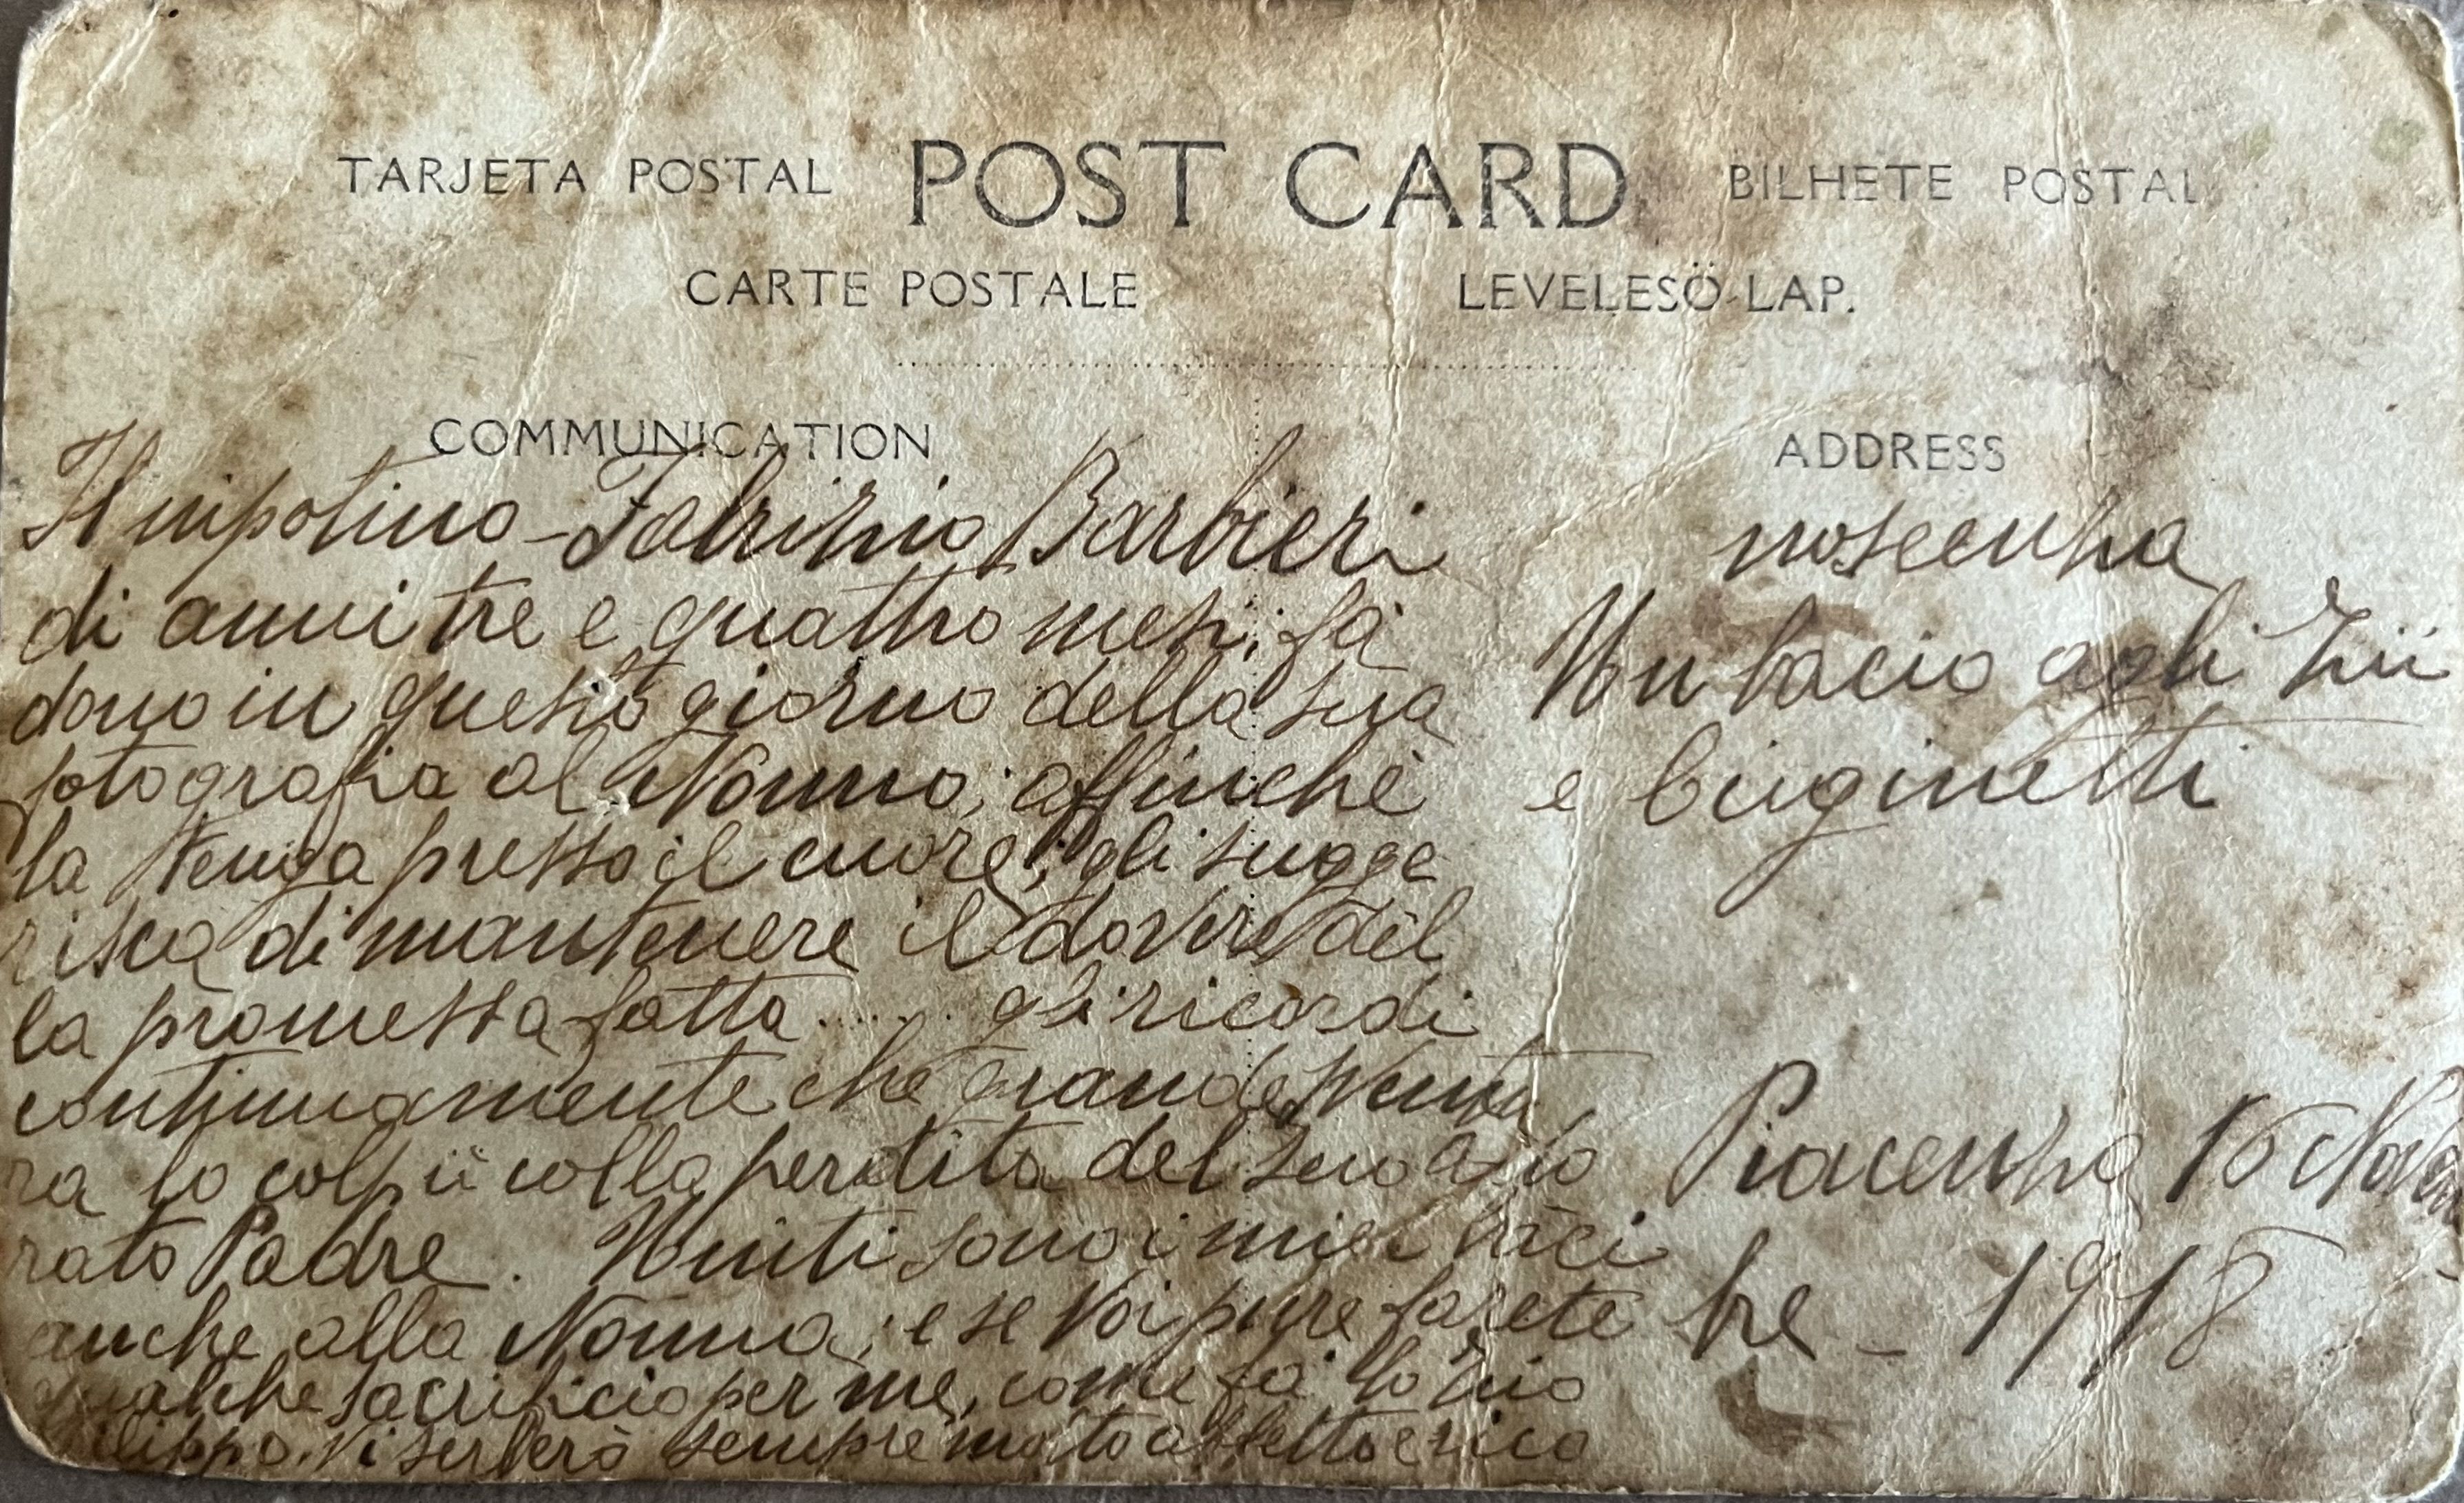 TARJETA POSTAL POST CARD BILHETE POSTAL
CARTE POSTALE LEVELESÖ-LAP.
COMMUNICATION
Il nipotino Fabrizio Barbieri
di anni tre e quattro mesi; fà
dono in questo giorno della sua
fotografia al Nonno; affinchè
la tenga presso il cuore; gli sugge
risca di mantenere il dovere del
la promessa fatta ...... gli ricordi
continuamente che grande sventu
ra lo colpii colla perdita del suo ado
rato Padre. Uniti sono i miei baci
anche alla Nonna; e se Voi pure farete
qualche sacrificio per me, come fa lo Zio
Filippo. Vi serberò sempre molto affetto e rico
ADDRESS
noscenza
Un bacio agli Zii
e cuginetti
Piacenza Novem
bre - 1918